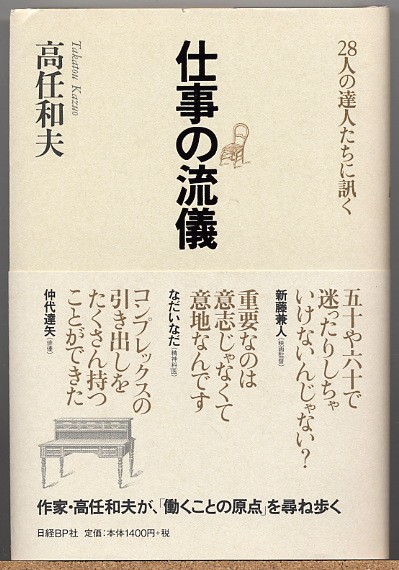 28人の達人たちに訊く
仕事の流儀
Takatou Kazuo
高任和夫
五十や六十で
迷ったりしちゃ
いけないんじゃない？
新藤兼人（映画監督）
重要なのは
意志じゃなくて
意地なんです
なだいなだ（精神科医）
コンプレックスの
引き出しを
たくさん持つ
ことができた
仲代達矢（俳優）
作家・高任和夫が、「働くことの原点」を尋ね歩く
日経BP社　定価：本体1400円＋税